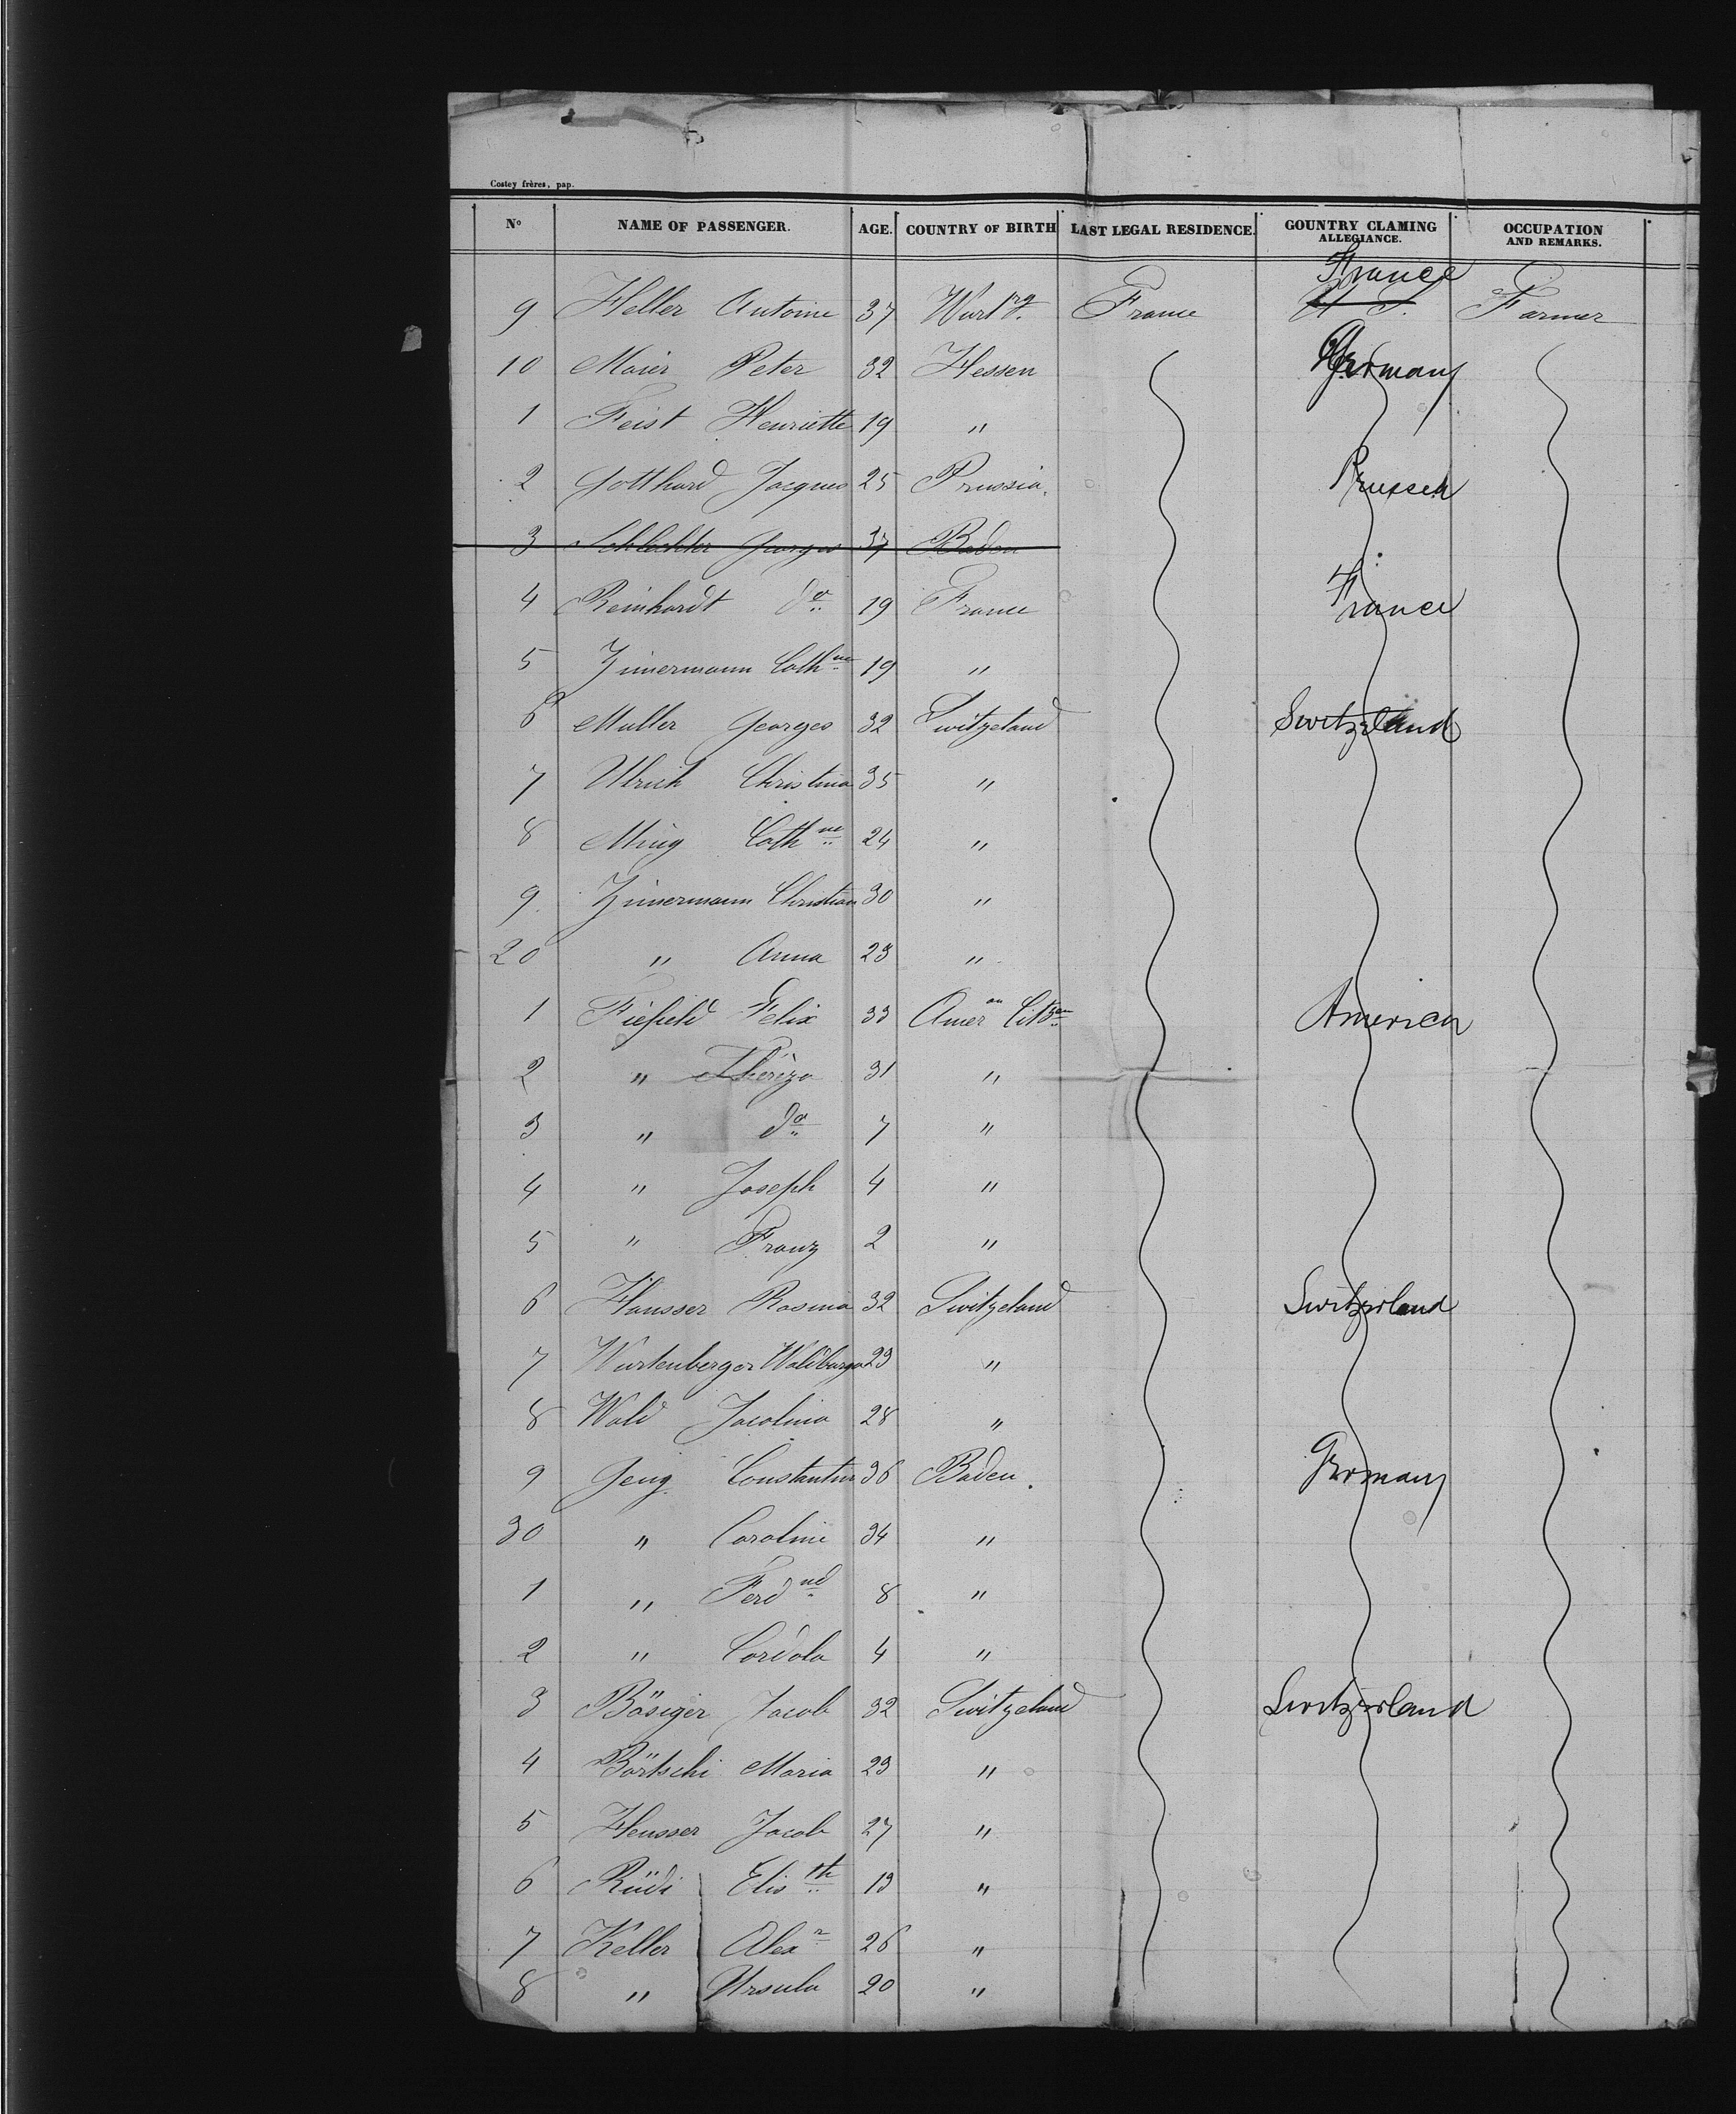 Costey frères, pap.
N° NAME OF PASSENGER. AGE. COUNTRY OF BIRTH LAST LEGAL RESIDENCE. COUNTRY CLAMING ALLEGIANCE. OCCUPATION AND REMARKS.
France
9 Heller Antoine 37 Wurtrg. France Farmer
10 Maier Peter 32 Hessen Germany
1 Feist Henriette 19 "
2 Gotthard Jacques 25 Prussia. Prussen
3 Schlechter Georges 37 Baden
4 Reinhardt do 19 France France
5 Zimermann Cathne 19 "
6 Muller Georges 32 Switzeland Switzerland
7 Ulrich Christina 35 "
8 Ming Cathne 24 "
9 Zimermann Christian 30 "
20 " Anna 23 "
1 Fiefield Felix 33 Ameran Citzen America
2 " Thèreza 31 "
3 " do 7 "
4 " Joseph 4 "
5 " Franz 2 "
6 Hausser Rosina 32 Switzeland Switzerland
7 Wurtenberger Waldburga 23 "
8 Wald Jacolina 28 "
9 Geng Constantin 36 Baden. Germany
30 " Caroline 34 "
1 " Ferdnd 8 "
2 " Cordola 4 "
3 Bösiger Jacob 32 Switzeland Switzerland
4 Börtschi Maria 23 "
5 Heusser Jacob 27 "
6 Rüdi Elisth 19 "
7 Keller Alexr 26 "
8 " Ursula 20 "